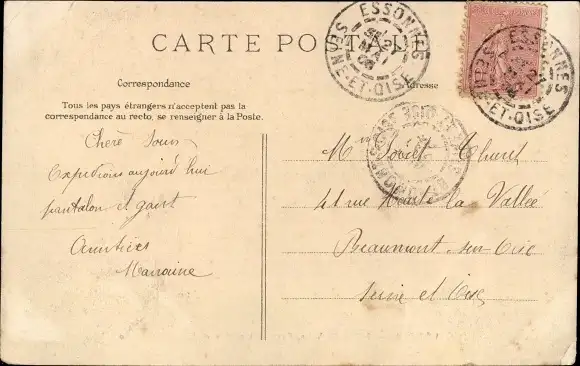 CARTE POSTALE
Correspondance
Adresse
Tous les pays étrangers n'acceptent pas la
correspondance au recto, se renseigner à la Poste.
Chère
Expedions aujourd'hui
pantalon et
Amitiés
Marraine
ESSONNES
SEINE-ET-OISE
ESSONNES
SEINE-ET-OISE
41 rue Haute la Vallée
Beaumont-sur-Oise
Seine et Oise